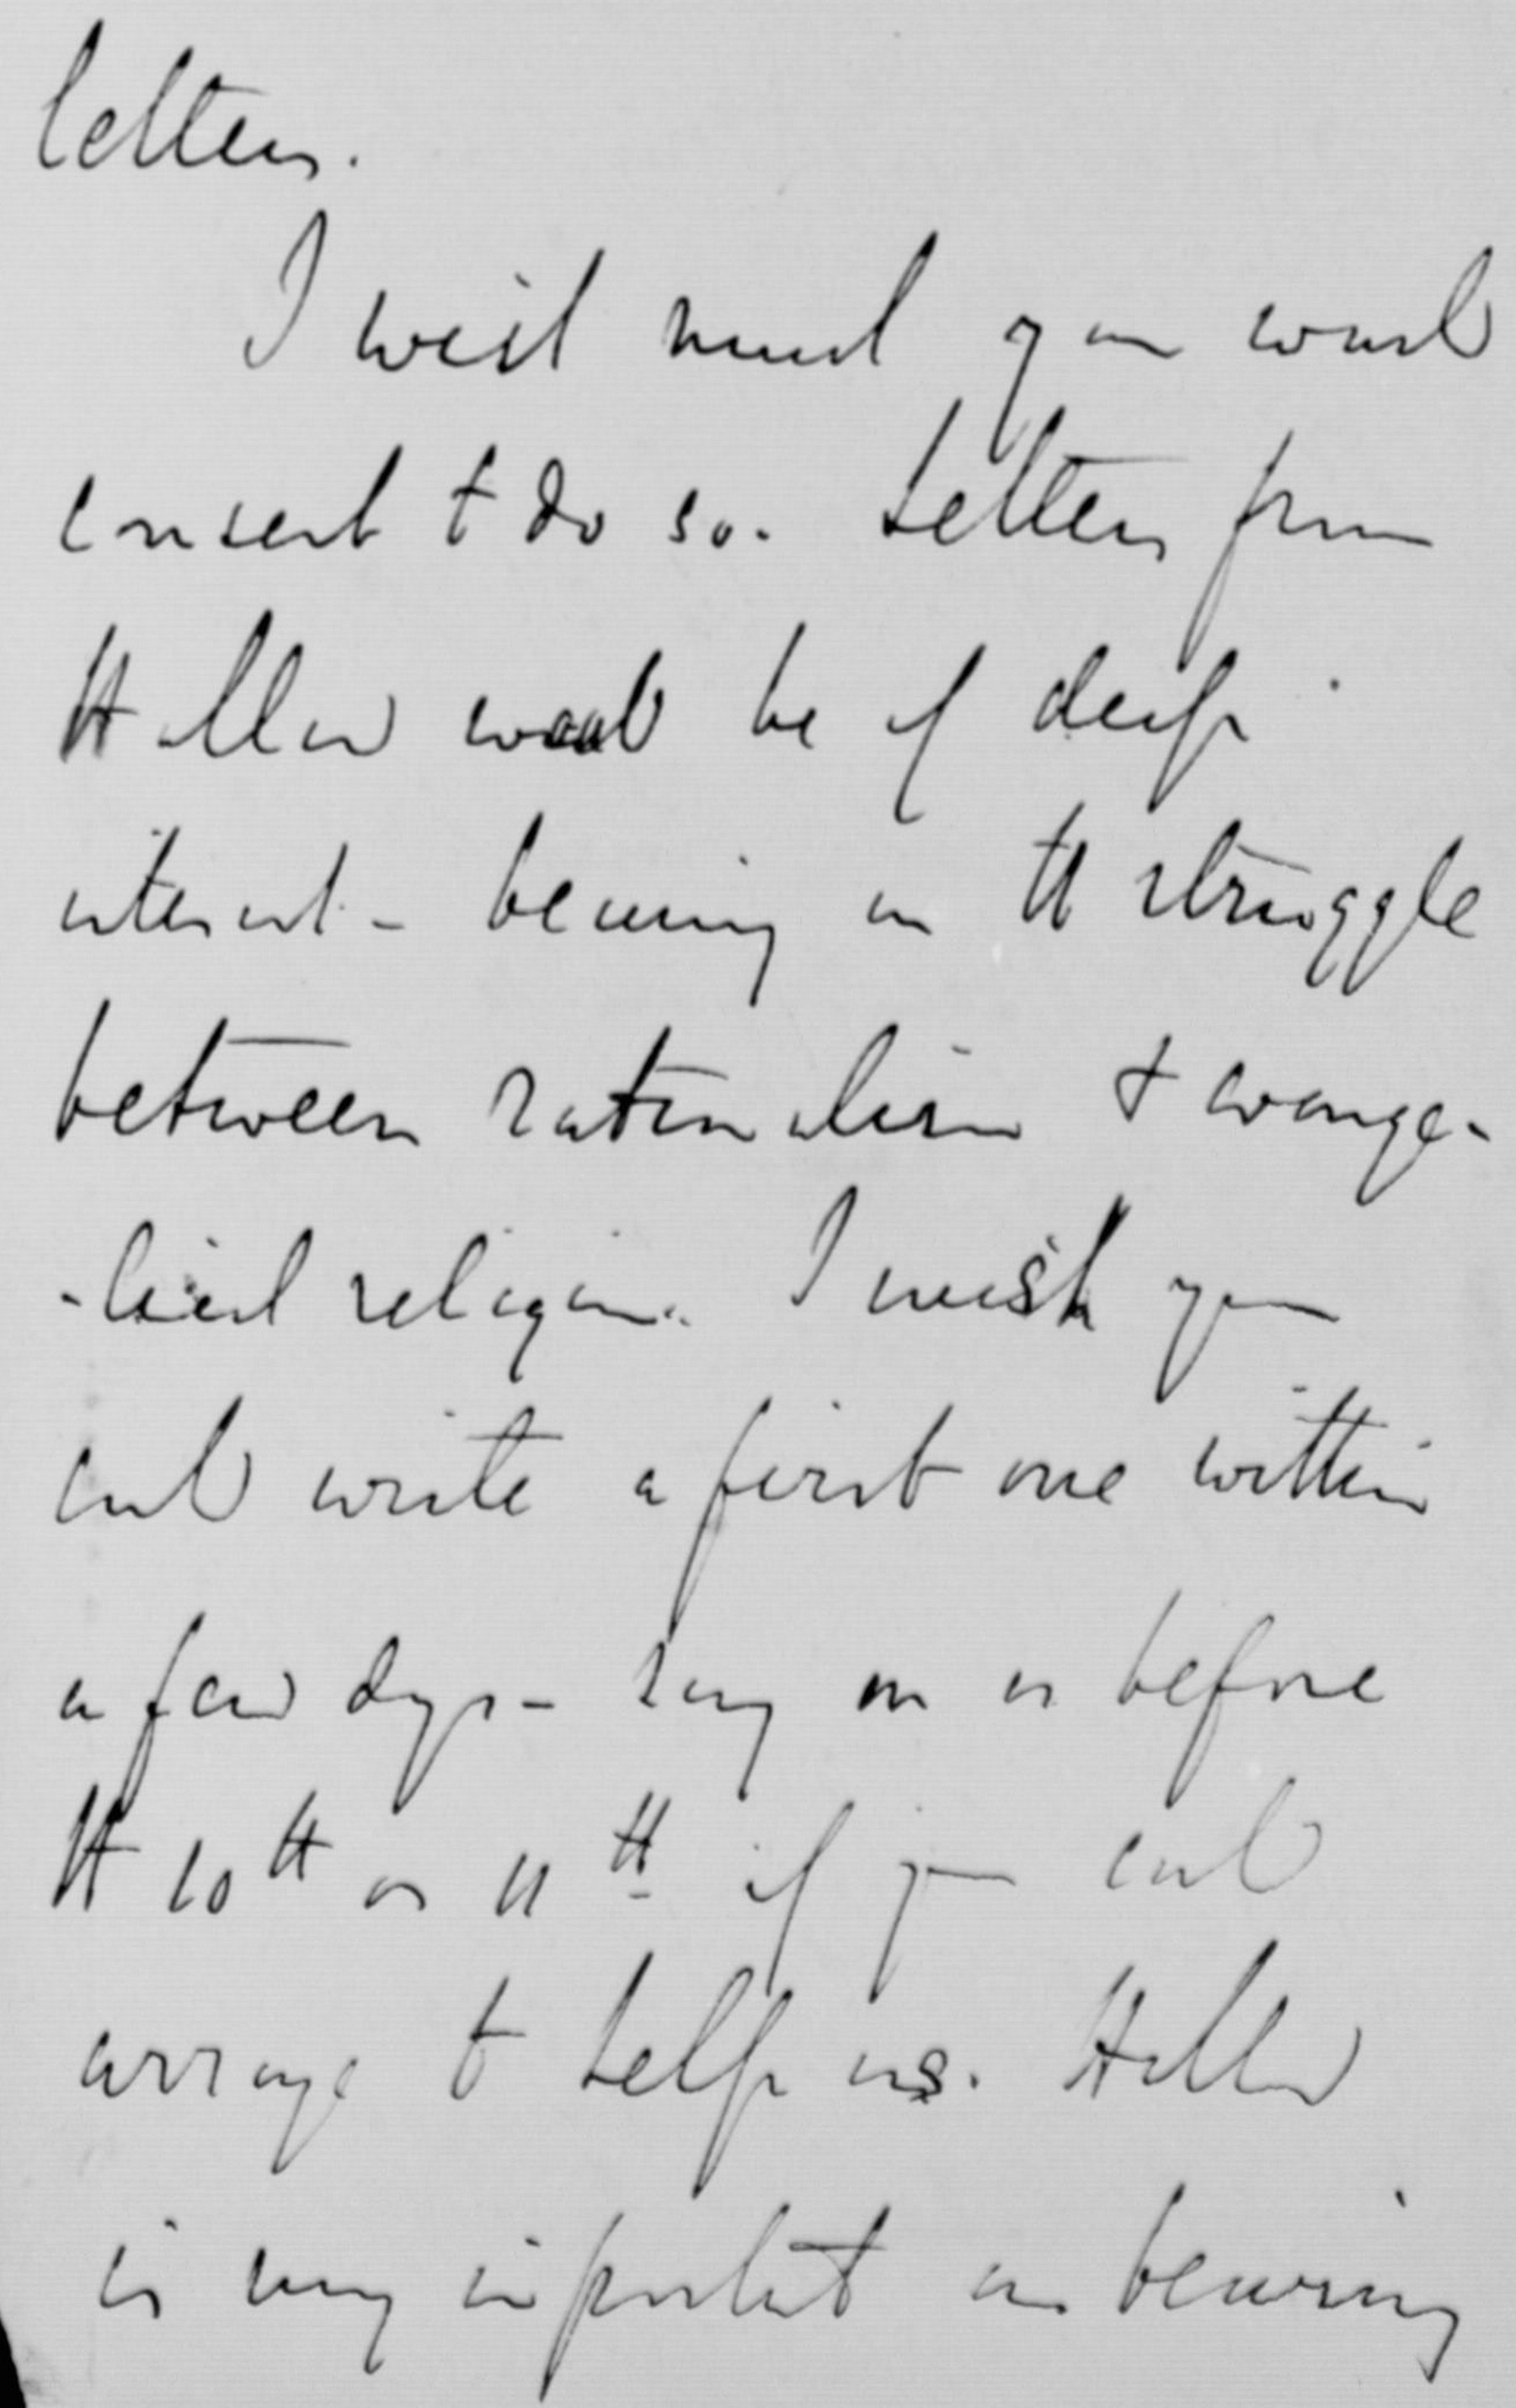 letters.
I wish much you would
consent to do so. Letters from
Holland would be of deep
interest - bearing on the struggle
between rationalism & evange-
-lical religion. I wish you
could write a first one within
a few days - say on or before
the 10th or 11th if you could
arrange to help us. Holland
is very important as bearing